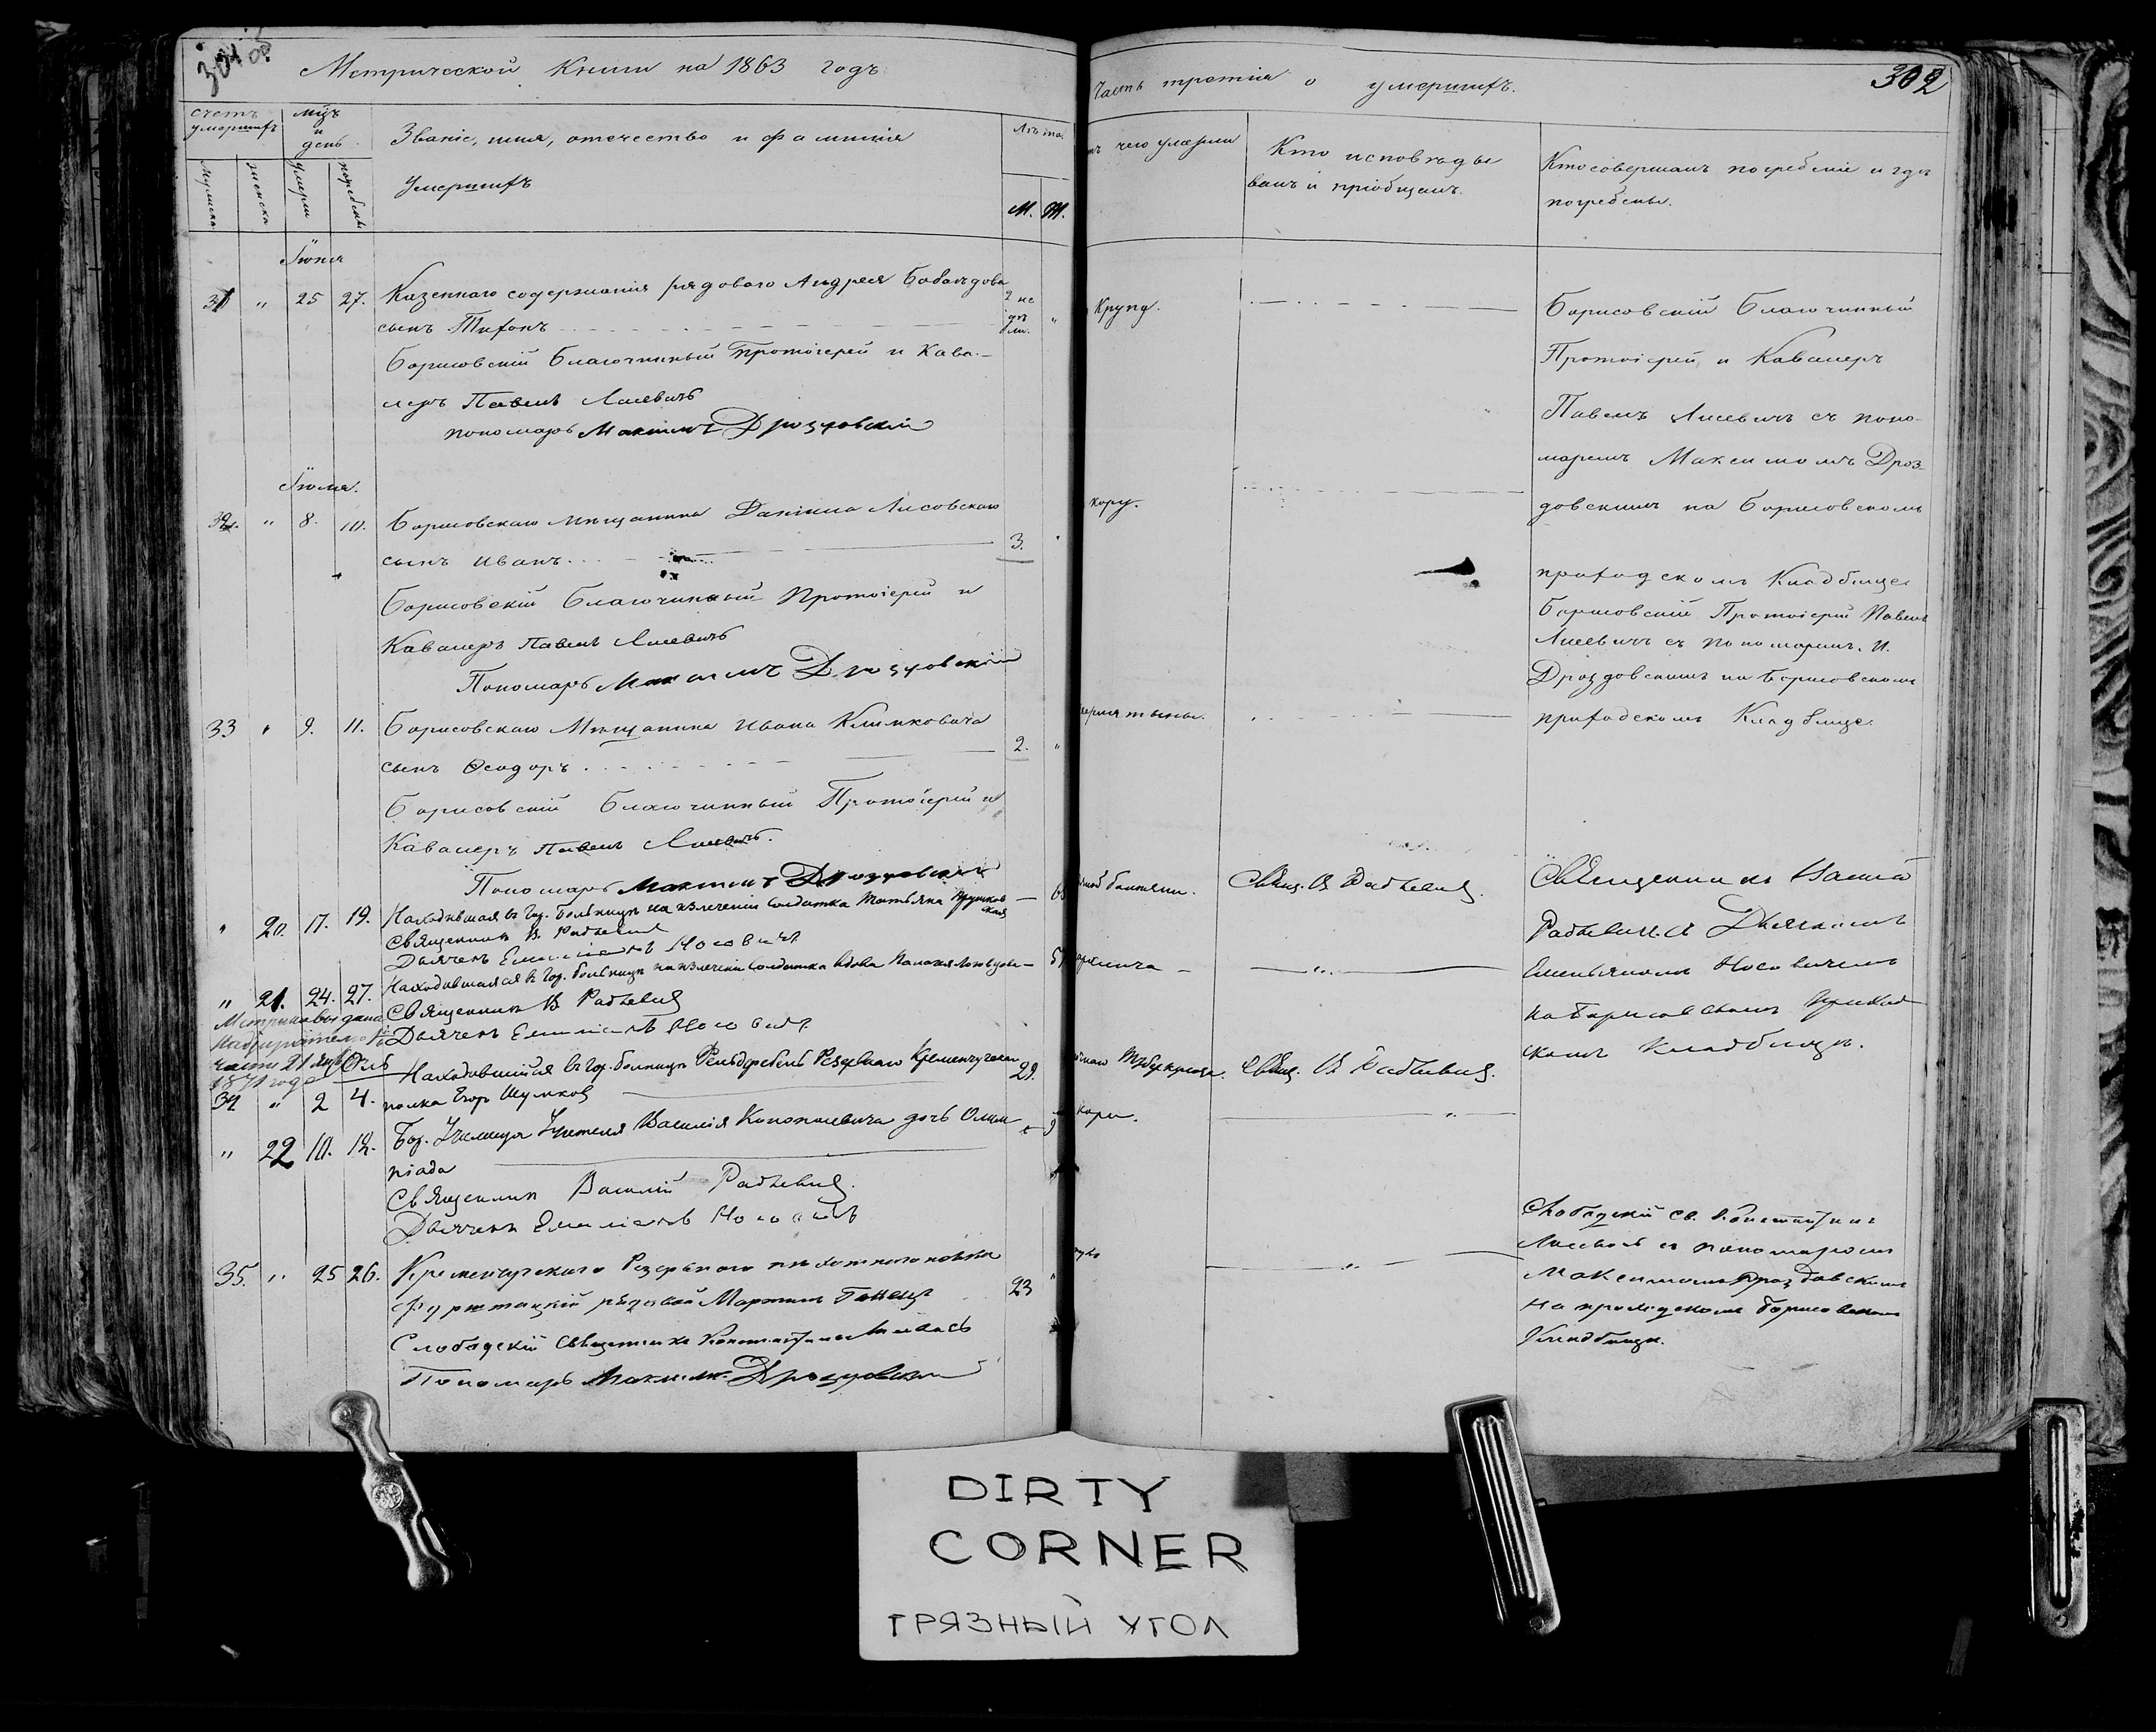 Метрической Книги на 1863 годъ
Часть третія о умершихъ.
302
счетъ умершихъ
мцъ и день
Званіе, имя, отечество и фамилія
умершихъ
Лѣта
мужска
женска
умерли
погребены
М. Ж.
чего умерли
Кто исповѣды
валъ и пріобщалъ.
Кто совершалъ погребеніе и гдѣ
погребены.
Іюня
31 " 25 27. Казеннаго содержанія рядоваго Андрея
сынъ Тихонъ
Крупа.
Борисовскій Благочинный Протоіерей и Кава-
леръ Павелъ Лисевичъ
пономарь Максимъ Дроздовскій
Борисовскій Благочинный
Протоіерей и Кавалеръ
Павелъ Лисевичъ съ поно-
маремъ Максимомъ Дроз-
довскимъ на Борисовскомъ
приходскомъ Кладбище
Іюля.
32. " 8. 10. Борисовскаго мѣщанина Даніила Лисовскаго
сынъ Иванъ. 3.
кору.
Борисовскій Благочинный Протоіерей и
Кавалеръ Павелъ Лисевичъ
Пономарь Максимъ Дроздовскій
Борисовскій Протоіерей Павелъ
Лисевичъ съ пономаремъ. М.
Дроздовскимъ на Борисовскомъ
приходскомъ Кладбище.
33 " 9. 11. Борисовскаго Мѣщанина Ивана Климковича
сынъ Ѳеодоръ. 2. "
Борисовскій Благочинный Протоіерей и
Кавалеръ Павелъ Лисевичъ.
Пономарь Максимъ Дроздовскій
" 20. 17. 19. Находившая въ Гор. Больницѣ на излеченіи Солдатка Татьяна
Священникъ В. Радкевичъ
Дьячекъ Емиліанъ Носовичъ
Свящ. В. Радкевичъ.
Священникъ Василій
Радкевичъ съ Дьячкомъ
Емельяномъ Носовичемъ
на Борисовскомъ приход
скомъ кладбищѣ.
" 21. 24. 27. Находившаяся въ Гор. больницѣ на излеченіи Солдатка вдова
Священникъ В Радкевичъ
Дьячекъ Емиліанъ Носовичъ
Метрика выдана
части 21
1871 года
34 " 2 4. Находившійся въ гор. больницѣ Фельдфебель Резервнаго Кременчугскаго
полка Егоръ Шумковъ 29.
Свящ. В Радкевичъ.
" 22 10. 12. Учителя Василія дочь Олим
піада
кори.
Священникъ Василій Радкевичъ.
Дьячекъ Емиліанъ Носовичъ
35. " 25 26. Кременчугскаго Резервнаго пѣхотнаго полка
фурштацкій рядовой Мартинъ 23
Слободскій Священникъ Константинъ
Пономарь Максимъ Дроздовскій
Слободскій св. Константинъ
съ пономаремъ
Максимомъ Дроздовскимъ
на приходскомъ Борисовскомъ
Кладбищѣ.
DIRTY
CORNER
ГРЯЗНЫЙ УГОЛ